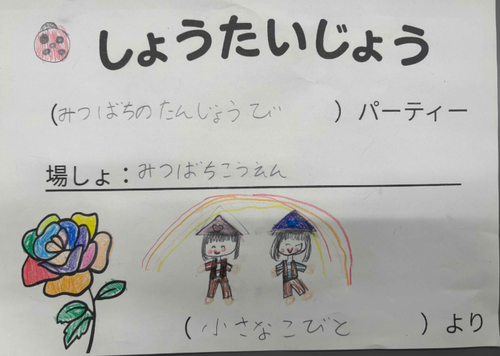 しょうたいじょう
(みつばちのたんじょうび)パーティー
場しょ：みつばちこうえん
(小さなこびと)より